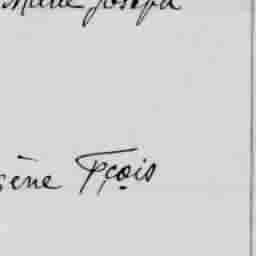 Marie Joseph
gène Fçois